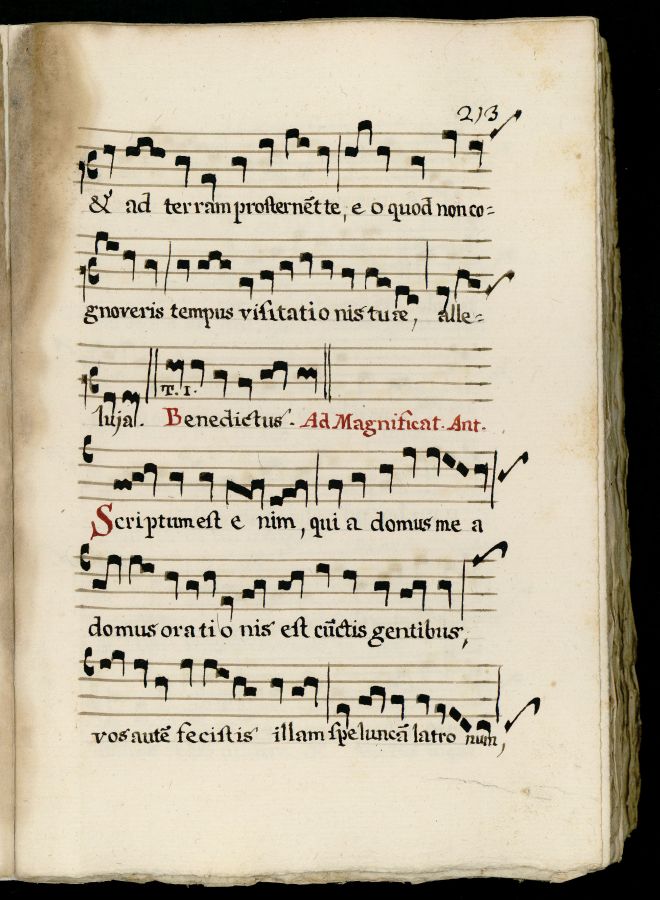 213
& ad terram prosternēt te, e o quod non co=
gnoveris tempus visitationis tuæ, alle=
luja. T. 1. Benedictus. Ad Magnificat. Ant.
Scriptum est enim, quia domus mea
domus orationis est cūctis gentibus,
vos autē fecistis illam speluncā latronum,